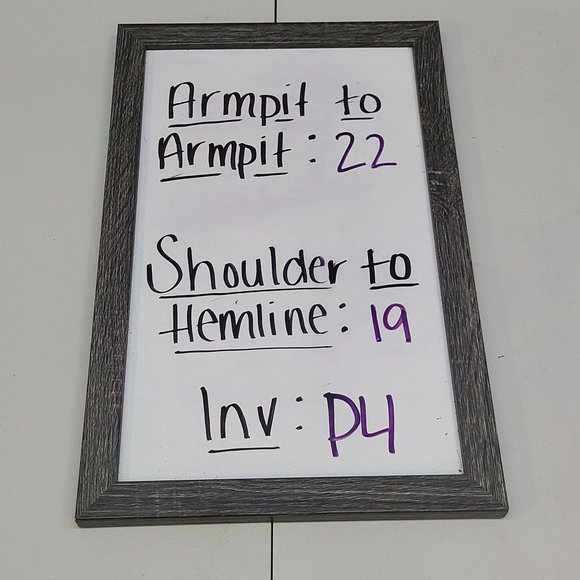 Armpit to
Armpit: 22
Shoulder to
Hemline: 19
Inv: P4